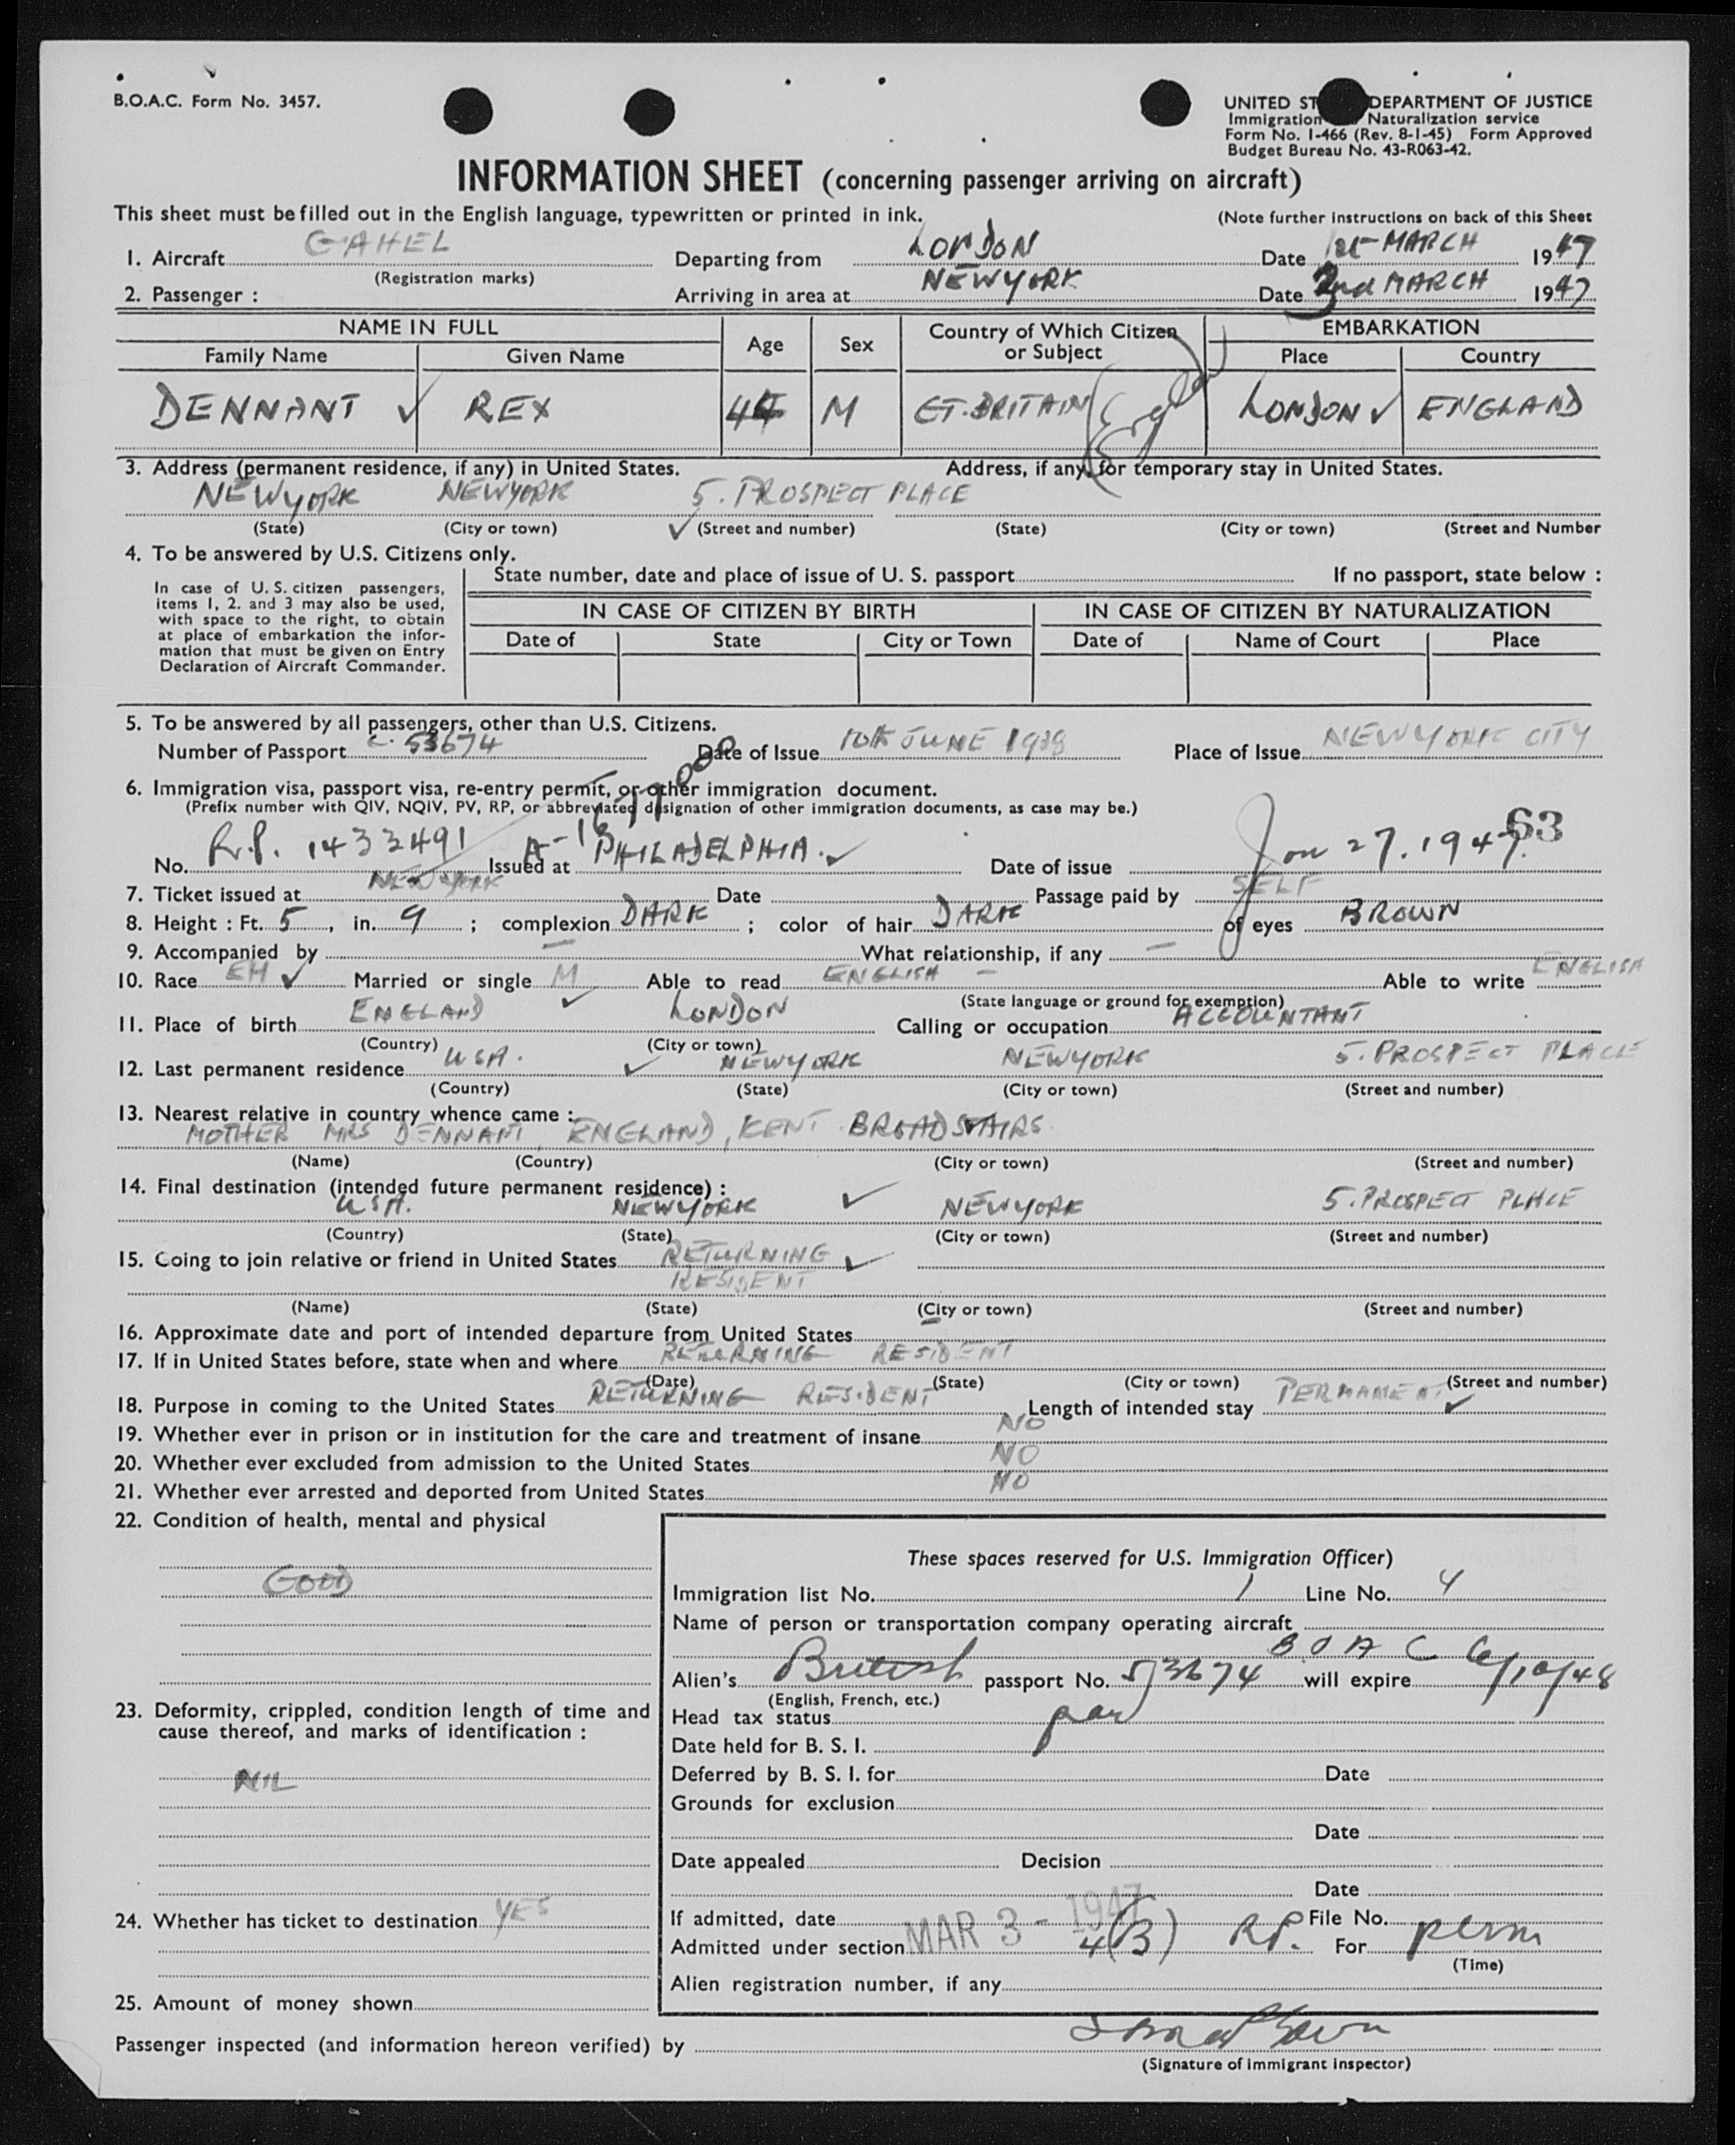 B.O.A.C. Form No. 3457.
UNITED ST DEPARTMENT OF JUSTICE
Immigration Naturalization service
Form No. I-466 (Rev. 8-1-45) Form Approved
Budget Bureau No. 43-R063-42.
INFORMATION SHEET (concerning passenger arriving on aircraft)
This sheet must be filled out in the English language, typewritten or printed in ink. (Note further instructions on back of this Sheet
1. Aircraft GAHEL Departing from LONDON Date 1st MARCH 1947
(Registration marks)
2. Passenger : Arriving in area at NEW YORK Date MARCH 1947
NAME IN FULL Age Sex Country of Which Citizen or Subject EMBARKATION
Family Name Given Name Place Country
DENNANT ✓ REX 44 M GT. BRITAIN LONDON ✓ ENGLAND
3. Address (permanent residence, if any) in United States. Address, if any, for temporary stay in United States.
NEW YORK NEW YORK 5. PROSPECT PLACE
(State) (City or town) ✓ (Street and number) (State) (City or town) (Street and Number
4. To be answered by U.S. Citizens only.
In case of U. S. citizen passengers,
items 1, 2. and 3 may also be used,
with space to the right, to obtain
at place of embarkation the infor-
mation that must be given on Entry
Declaration of Aircraft Commander.
State number, date and place of issue of U. S. passport If no passport, state below :
IN CASE OF CITIZEN BY BIRTH IN CASE OF CITIZEN BY NATURALIZATION
Date of State City or Town Date of Name of Court Place
5. To be answered by all passengers, other than U.S. Citizens.
Number of Passport C. 53674 Date of Issue 10th JUNE 1938 Place of Issue NEW YORK CITY
6. Immigration visa, passport visa, re-entry permit, or other immigration document.
(Prefix number with QIV, NQIV, PV, RP, or abbreviated designation of other immigration documents, as case may be.)
63
No. R.P. 1433491 Issued at PHILADELPHIA ✓ Date of issue Jan 27. 1947.
7. Ticket issued at NEW YORK Date Passage paid by SELF
8. Height : Ft. 5, in. 9 ; complexion DARK ; color of hair DARK of eyes BROWN
9. Accompanied by — What relationship, if any —
10. Race EH ✓ Married or single M Able to read ENGLISH – Able to write ENGLISH
(State language or ground for exemption)
11. Place of birth ENGLAND ✓ LONDON Calling or occupation ACCOUNTANT
(Country) (City or town)
12. Last permanent residence USA. ✓ NEW YORK NEW YORK 5. PROSPECT PLACE
(Country) (State) (City or town) (Street and number)
13. Nearest relative in country whence came :
MOTHER MRS DENNANT, ENGLAND, KENT. BROADSTAIRS.
(Name) (Country) (City or town) (Street and number)
14. Final destination (intended future permanent residence) :
USA. NEW YORK ✓ NEW YORK 5. PROSPECT PLACE
(Country) (State) (City or town) (Street and number)
15. Going to join relative or friend in United States RETURNING ✓
RESIDENT
(Name) (State) (City or town) (Street and number)
16. Approximate date and port of intended departure from United States
17. If in United States before, state when and where RETURNING RESIDENT
(Date) (State) (City or town) (Street and number)
18. Purpose in coming to the United States RETURNING RESIDENT Length of intended stay PERMANENT ✓
19. Whether ever in prison or in institution for the care and treatment of insane NO
20. Whether ever excluded from admission to the United States NO
21. Whether ever arrested and deported from United States NO
22. Condition of health, mental and physical
GOOD
23. Deformity, crippled, condition length of time and
cause thereof, and marks of identification :
NIL
24. Whether has ticket to destination YES
25. Amount of money shown
These spaces reserved for U.S. Immigration Officer)
Immigration list No. 1 Line No. 4
Name of person or transportation company operating aircraft
B O A C
Alien's British passport No. 53674 will expire 6/10/48
(English, French, etc.)
Head tax status
Date held for B. S. I.
Deferred by B. S. I. for Date
Grounds for exclusion
Date
Date appealed Decision
Date
If admitted, date MAR 3 - 1947 File No.
Admitted under section 4(B) R.P. For perm
(Time)
Alien registration number, if any
Passenger inspected (and information hereon verified) by
(Signature of immigrant inspector)